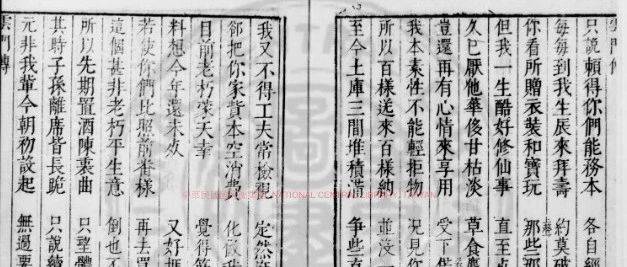 雲門傳
只說賴得你們能務本 各自經
每每到我生辰來拜壽 約莫破
你看所贈衣裝和寶玩 那些
但我一生酷好修仙事 直至
久已厭他華侈甘枯淡 草食
豈還再有心情來享用 受下
我本素性不能輕拒物 況見你
所以百樣送來百樣納 並沒一
至今土庫三間堆積滿 爭些
我又不得工夫常檢視 定然
卻把你家貲本空消費 化
目前老朽蒙天幸 覺得
料想今年還未歿 又好
若使你們比照前番樣 再去置
這個甚非老朽平生意 倒也不
所以先期置酒陳衷曲 只
其時子孫離席皆長跪 只說
元非我輩今朝初設起 無過要
雲門傳
NATIONAL CENTRAL LIBRARY, TAIWAN